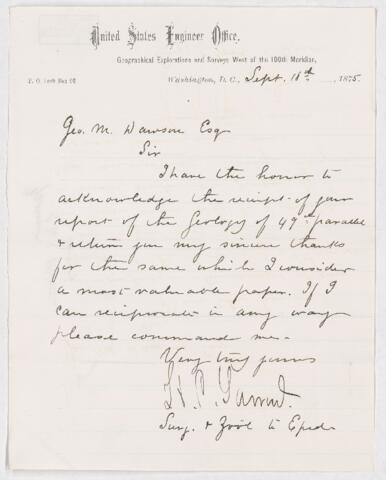 United States Engineer Office,
Geographical Explorations and Surveys West of the 100th Meridian,
P. O. Lock Box 93
Washington, D. C., Sept. 16th 1875.
Geo. M. Dawson Esq
Sir
I have the honor to
acknowledge the receipt of your
report of the Geology of 49th parallel
& return you my sincere thanks
for the same which I consider
a most valuable paper. If I
can reciprocate in any way
please command me.-
Very truly yours
H. C. Yarrow.
Surg. & Zool to Exped